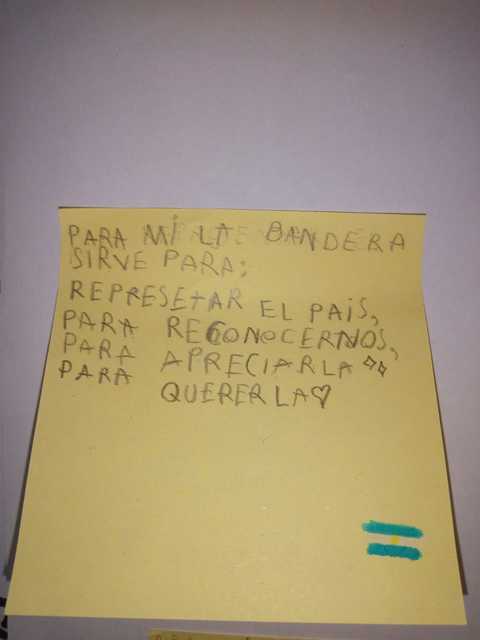 PARA MI LA BANDERA
SIRVE PARA:
REPRESETAR EL PAIS,
PARA RECONOCERNOS,
PARA APRECIARLA
PARA QUERERLA